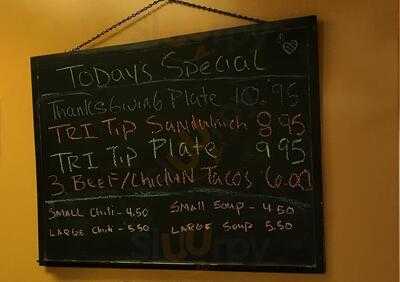 Today's Special
Thanksgiving Plate 10.95
TRI Tip Sandwhich 8 95
TRI Tip Plate 9 95
3 BEEF/Chicken Tacos 6.00
SMALL Chili - 4.50 SMALL Soup - 4.50
LARGE Chili - 5.50 LARGE Soup 5.50